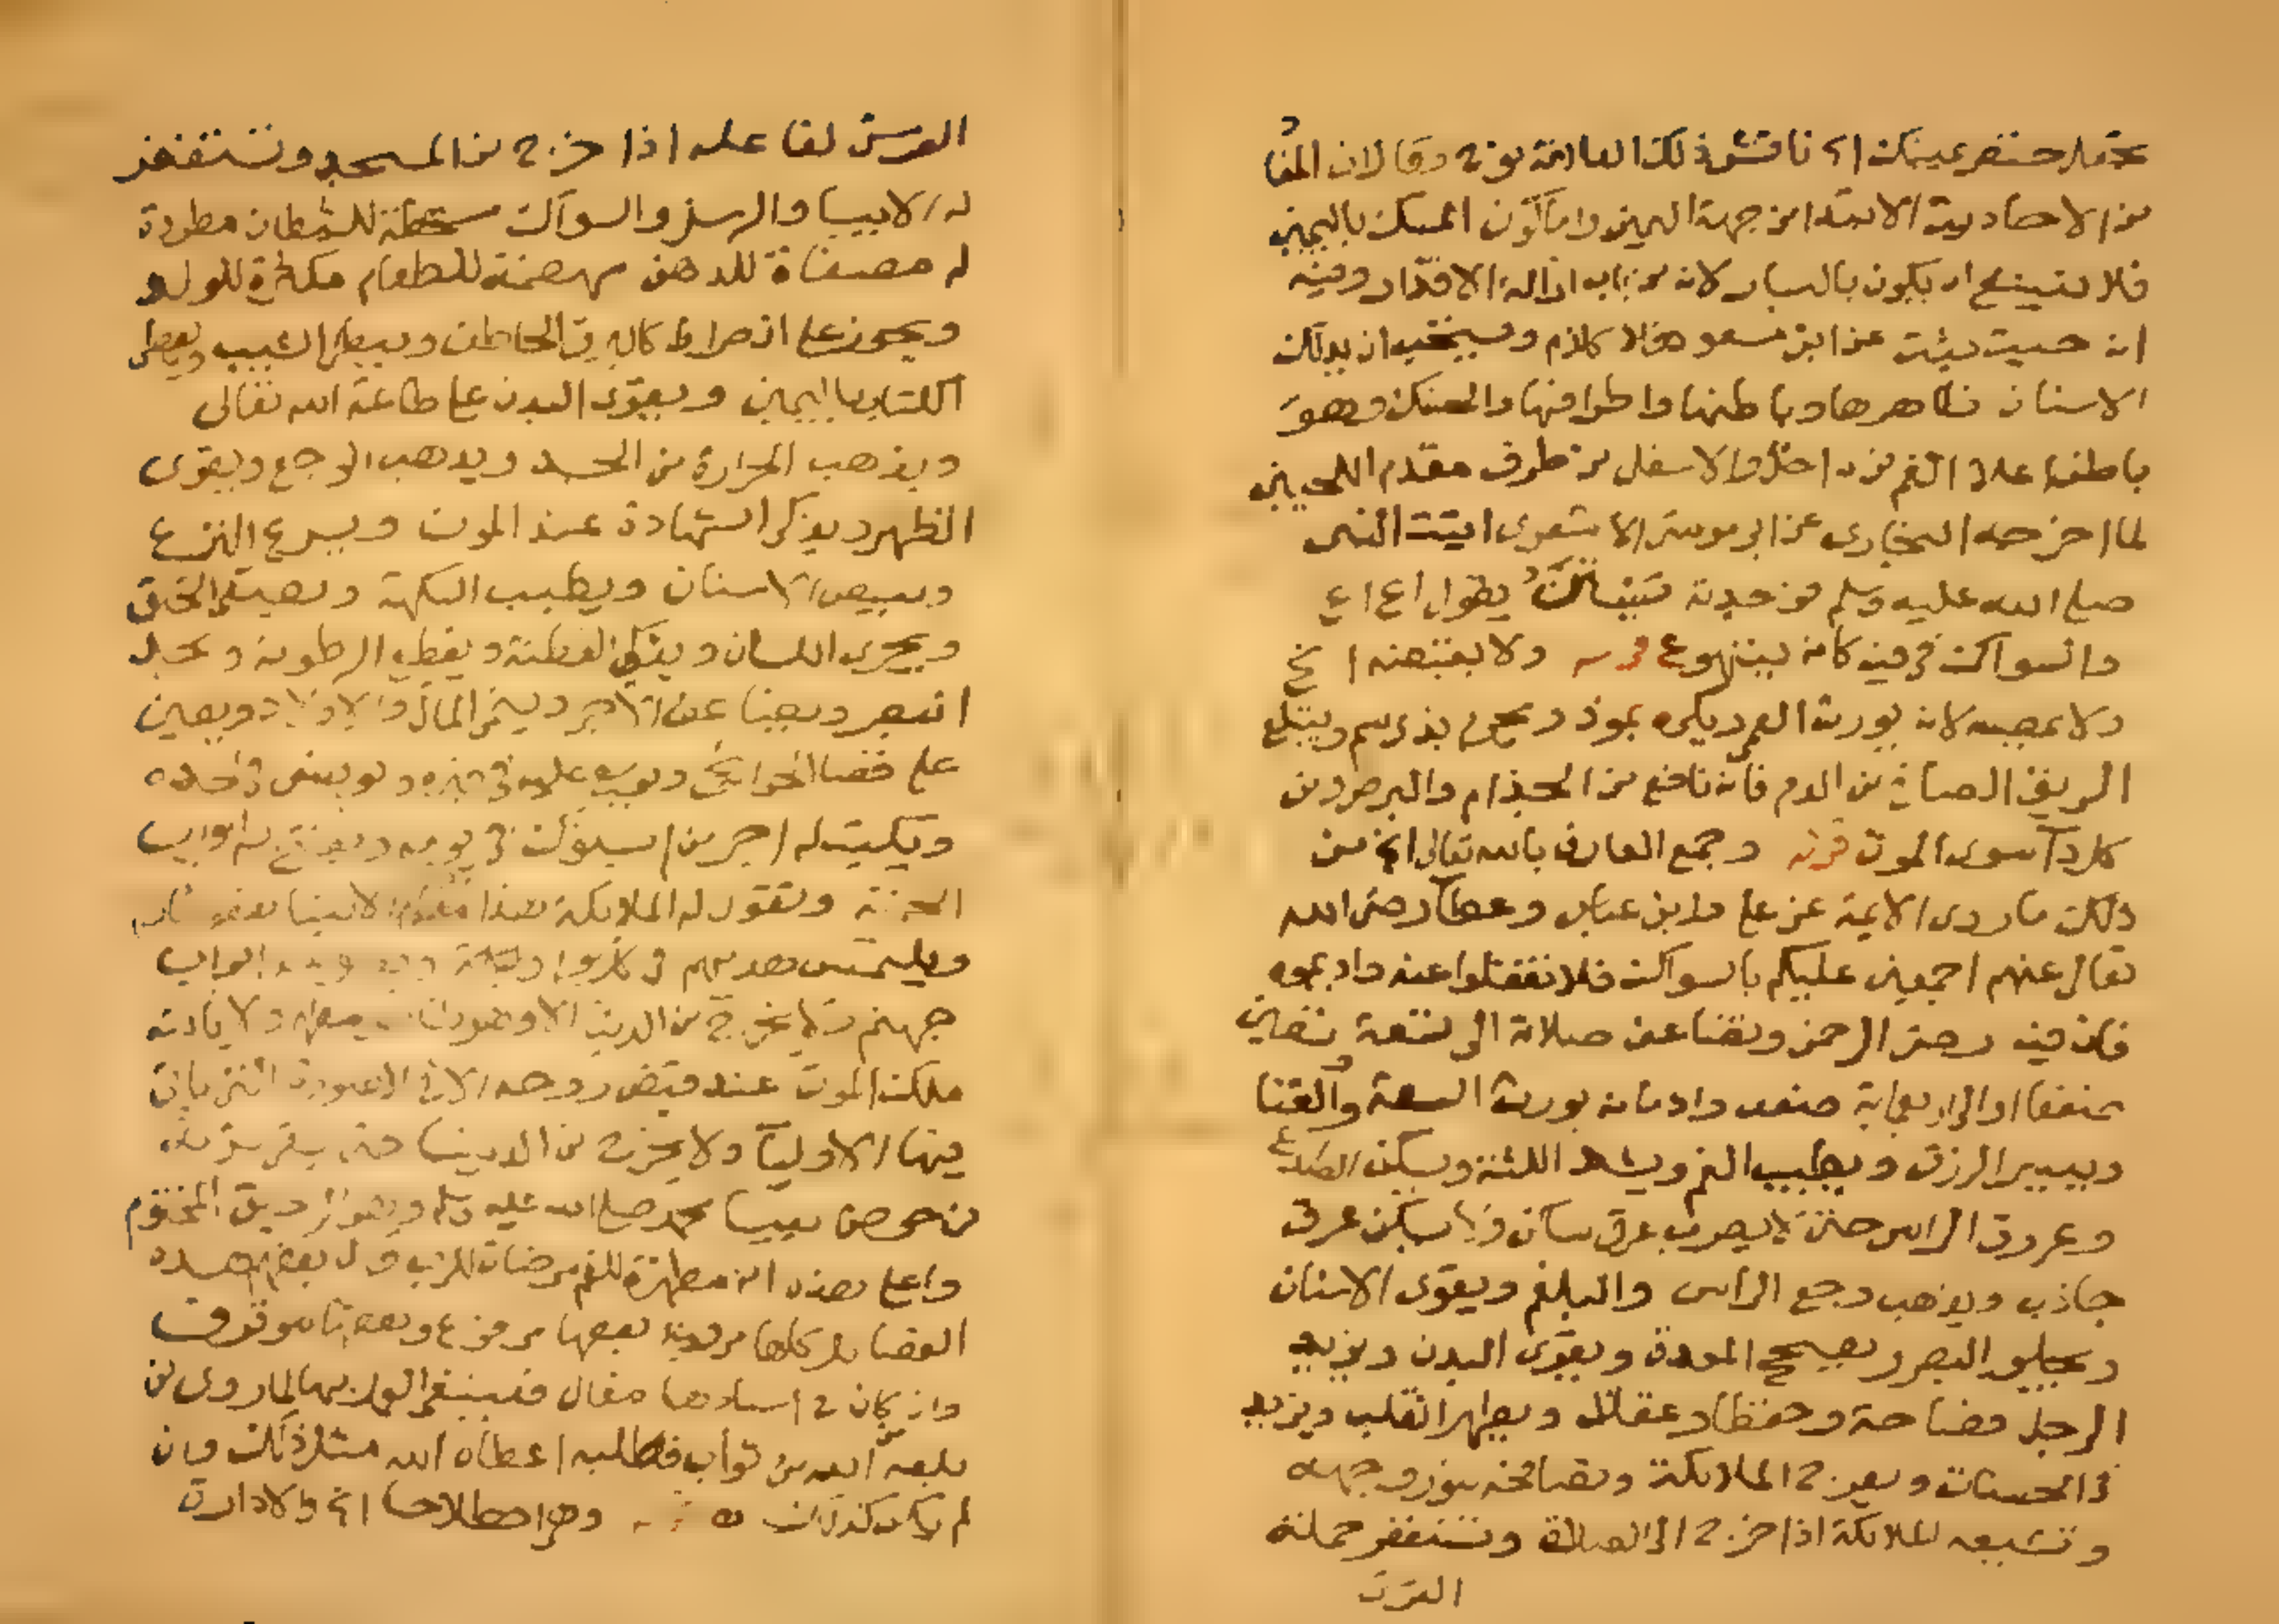 ناقش ذلك العلامة نوح وقال ان
من الاحاديث الابتدا من جهة اليمين واما كون المسك باليمين
فلا ينبغي ان يكون باليسار لانه من باب ازالة الاقذار وفيه
ان حيث ثبت عن ابن مسعود فلا كلام ويستحب ان يدلك
الاسنان ظاهرها وباطنها واطرافها والحنك وهو
باطن اعلا الفم من داخل والاسفل من طرف مقدم اللحيين
لما اخرجه البخاري عن ابي موسى الاشعري اتيت النبي
صلى الله عليه وسلم فوجدته يستاك يقول اع اع
والسواك في فيه كانه يتهوع قوله ولا يقبضه الخ
ولا يمصه لانه يورث العمى ويكره بموذ ويحرم بذي سم ويبتلع
الريق الصافي من الدم فانه نافع من الجذام والبرص ومن
كل دآ سوى الموت قوله وجمع العارف بالله تعالى الخ من
ذلك ما روى الايمة عن علي وابن عباس وعطآ رضى الله
تعالى عنهم اجمعين عليكم بالسواك فلا تغفلوا عنه واديموه
فان فيه رضى الرحمن وتضاعف صلاته الى تسعة وتسعين
ضعفا او الى اربعماية ضعف وادمانه يورث السعة والغنا
وييسر الرزق ويطيب الفم ويشد اللثة ويسكن الصداع
وعروق الراس حتى لا يضرب عرق ساكن ولا يسكن عرق
جاذب ويذهب وجع الراس والبلغم ويقوى الاسنان
ويجلو البصر ويصحح المعدة ويقوى البدن ويزيد
الرجل فصاحة وحفظا وعقلا ويطهر القلب ويزيد
في الحسنات ويفرح الملائكة وتصافحه لنور وجهه
وتشيعه الملائكة اذا خرج الى الصلاة وتستغفر حملة
العرش
العرش لفاعله اذا خرج من المسجد وتستغفر
له الانبيا والرسل والسواك مسخطة للشيطان مطردة
له مصفاة للذهن مهضمة للطعام مكثرة للولد
ويجوز على الصراط كالبرق الخاطف ويبطي الشيب ويعطى
الكتاب باليمين ويقوى البدن على طاعة الله تعالى
ويذهب الحرارة من الجسد ويذهب الوجع ويقوى
الظهر ويذكر الشهادة عند الموت ويسرع النزع
ويبيض الاسنان ويطيب النكهة ويصفى الحلق
ويجرى اللسان ويذكى الفطنة ويقطع الرطوبة ويحد
البصر ويضاعف الاجر وينمى المال والاولاد ويعين
على قضا الحوائج ويوسع عليه في قبره ويونس في لحده
ويكتب له اجر من لم يستك في يومه ويفتح له ابواب
الجنة وتقول له الملائكة هذا مقتدي بالانبيا يقفو اثارهم
ويلتمس هديهم في كل يوم ابواب
جهنم ولا يخرج من الدنيا الا وهو طاهر مطهر ولا ياتيه
ملك الموت عند قبض روحه الا في الصورة التي ياتي
فيها الاوليآ ولا يخرج من الدنيا حتى يسقى شربة
من حوض نبينا محمد صلى الله عليه وسلم وهو الرحيق المختوم
واعلى هذه انه مطهرة للفم مرضات للرب قال بعضهم هذه
الفضايل كلها مروية بعضها مرفوع وبعضها موقوف
وان كان في اسنادها مقال فينبغي العمل بها لما روى من
بلغه عن الله من ثواب فطلبه اعطاه الله مثل ذلك وان
لم يكن كذلك قوله وهو اصطلاحا الخ والادارة